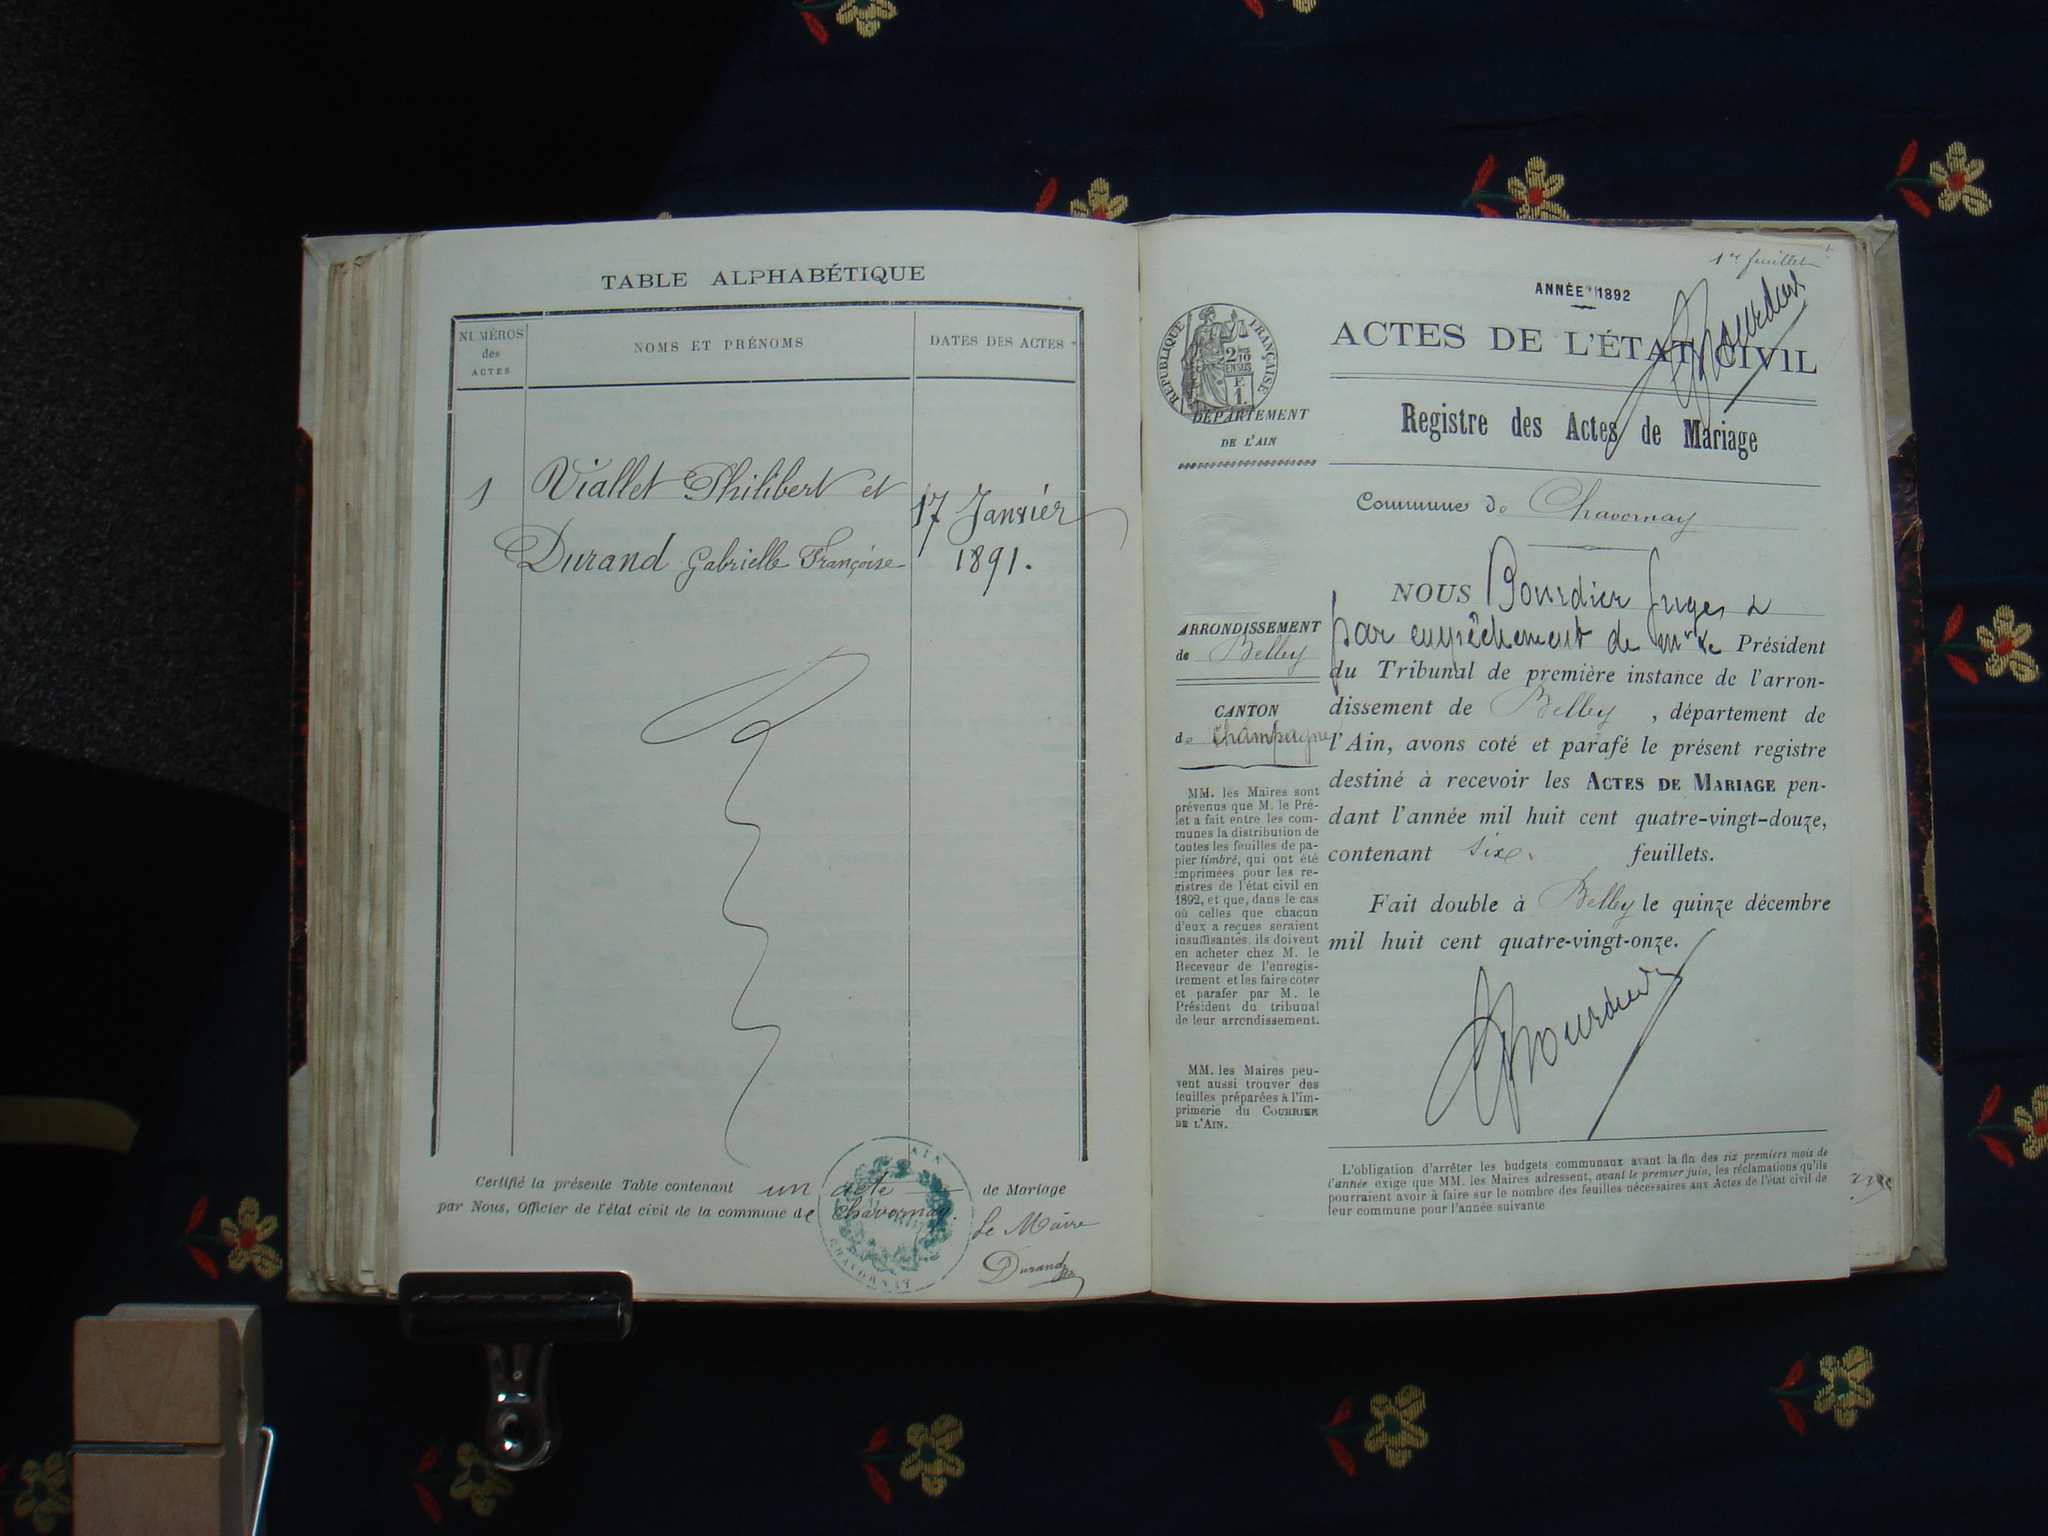 TABLE ALPHABÉTIQUE
NUMÉROS
des
ACTES
NOMS ET PRÉNOMS
DATES DES ACTES
1
Viallet Philibert et
17 Janvier
Durand Gabrielle Françoise
1891.
Certifié la présente Table contenant un acte de Mariage
par Nous, Officier de l'état civil de la commune de Chavornay.
Le Maire
Durand
AIN
CHAVORNAY
1er feuillet
Bourdier
ANNÉE 1892
ACTES DE L'ÉTAT CIVIL
Registre des Actes de Mariage
Commune de Chavornay
RÉPUBLIQUE FRANÇAISE
2 10
EN SUS
F.
1.
DÉPARTEMENT
DE L'AIN
ARRONDISSEMENT
de Belley
CANTON
de Champagne
MM. les Maires sont
prévenus que M. le Pré-
fet a fait entre les com-
munes la distribution de
toutes les feuilles de pa-
pier timbré, qui ont été
imprimées pour les re-
gistres de l'état civil en
1892, et que, dans le cas
où celles que chacun
d'eux a reçues seraient
insuffisantes, ils doivent
en acheter chez M. le
Receveur de l'enregis-
trement et les faire coter
et parafer par M. le
Président du tribunal
de leur arrondissement.
MM. les Maires peu-
vent aussi trouver des
feuilles préparées à l'im-
primerie du COURRIER
DE L'AIN.
NOUS Bourdier Juge
par empêchement de Mr le Président
du Tribunal de première instance de l'arron-
dissement de Belley, département de
l'Ain, avons coté et parafé le présent registre
destiné à recevoir les ACTES DE MARIAGE pen-
dant l'année mil huit cent quatre-vingt-douze,
contenant six feuillets.
Fait double à Belley le quinze décembre
mil huit cent quatre-vingt-onze.
Bourdier
L'obligation d'arrêter les budgets communaux avant la fin des six premiers mois de
l'année exige que MM. les Maires adressent, avant le premier juin, les réclamations qu'ils
pourraient avoir à faire sur le nombre des feuilles nécessaires aux Actes de l'état civil de
leur commune pour l'année suivante